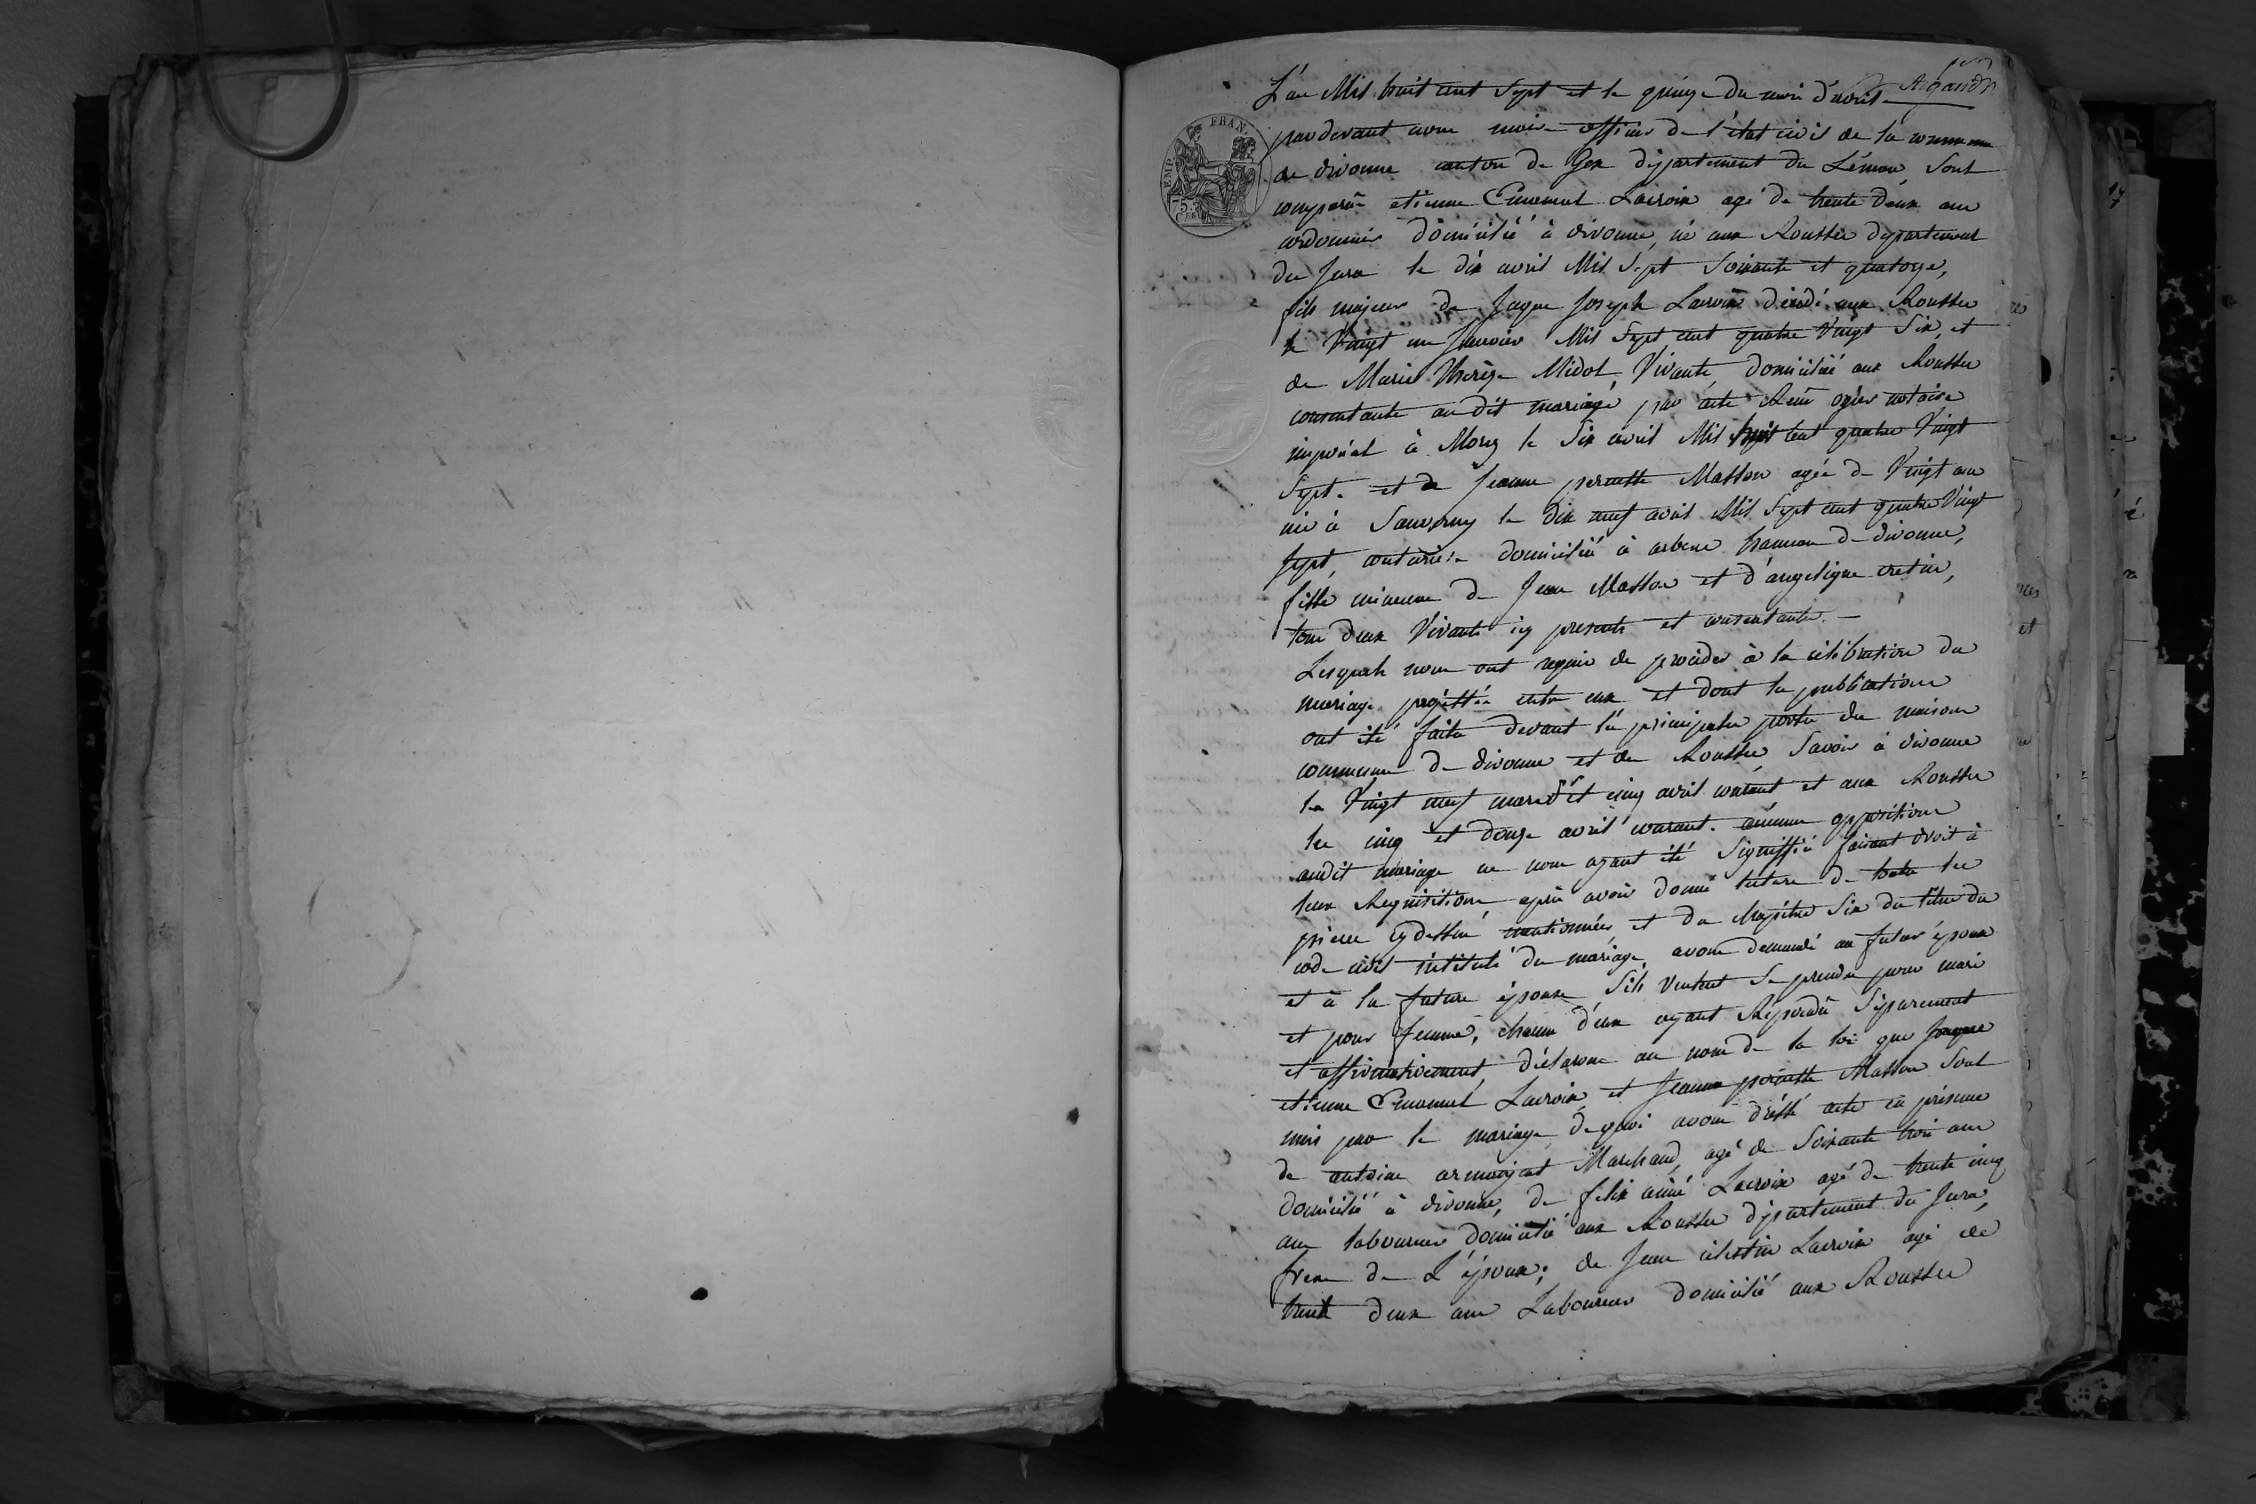 L'an Mil huit cent Sept et le quinze du mois d'avril
Argand
EMP. FRAN.
75.
pardevant nous maire officier de l'état civil de la commune
de divonne canton de Gex département du Léman, Sont
comparus etienne Emanuel Lacroix agé de trente deux ans
cordonnier domicilié à divonne, né aux Rousses departement
du Jura le dix avril Mil Sept Soixante et quatorze,
fils majeur de Jaque Joseph Lacroix décédé aux Rousses
le Vingt un Janvier Mil Sept cent quatre Vingt Six, et
de Marie Therèze Midol, Vivante, domiciliée aux Rousses
consentante au dit mariage par acte Reçu ogier notaire
imperial à Morez le Six avril Mil cent quatre Vingt
Sept. et de Jeanne pernette Masson agée de Vingt ans
née à Sauverny le dix neuf avril Mil Sept cent quatre Vingt
Sept, couturière domiciliée à arbere hameau de divonne,
fille mineure de Jean Masson et d'angelique cretin,
tous deux Vivants icy presents et consentants. —
Lesquels nous ont requis de procéder à la célébration du
mariage projettée entre eux et dont les publications
ont été faites devant les principales portes des maisons
communes de divonne et des Rousses Savoir à divonne
les Vingt neuf mars et cinq avril courant et aux Rousses
les cinq et douze avril courant. aucune opposition
audit mariage ne nous ayant été Signiffiée faisant droit à
leur Requisitions, après avoir donné lecture de toutes les
pieces cydessus mentionnées, et du chapitre Six du titre du
code civil intitulé du mariage, avons demandé au futur époux
et à la future épouse S'ils Veulent Se prendre pour mari
et pour femme, chacun d'eux ayant Repondu Séparement
et affirmativement, déclarons au nom de la loi que
etienne Emanuel Lacroix et Jeanne pernette Masson Sont
unis par le mariage. de quoi avons dressé acte en présence
de antoine armanjat Marchand agé de Soixante trois ans
domicilié à divonne, de felix aimé Lacroix agé de trente cinq
ans laboureur domicilié aux Rousses département du Jura,
frere de L'époux; de Jean célestin Lacroix agé de
trente deux ans Laboureur domicilié aux Rousses